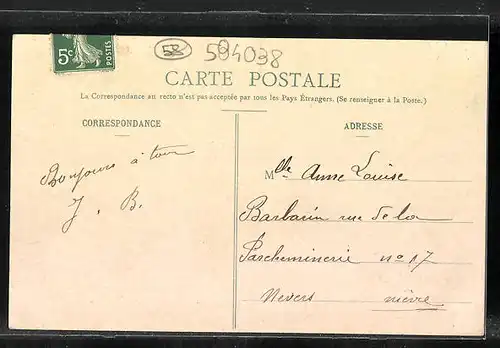 5c
POSTES
58
594038
CARTE POSTALE
La Correspondance au recto n'est pas acceptée par tous les Pays Étrangers. (Se renseigner à la Poste.)
CORRESPONDANCE
ADRESSE
Bonjours à tous
J. B.
Mlle Anne Louise
Barbarin rue de la
Parcheminerie no 17
Nevers nièvre